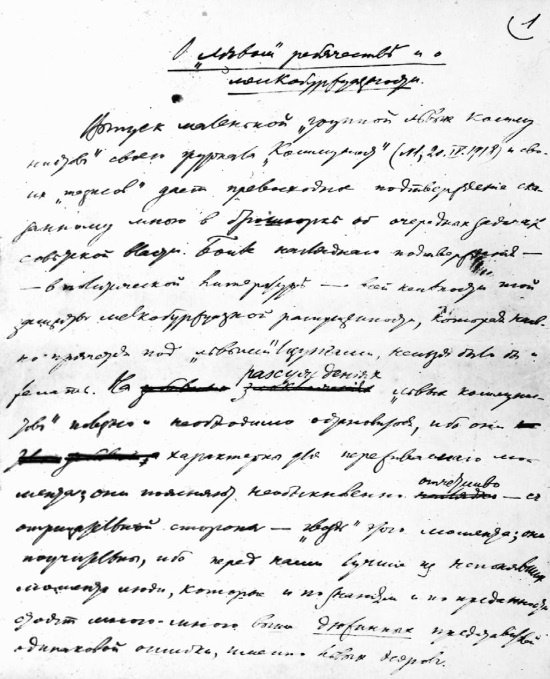 1
О „левом“ ребячестве и о
мелкобуржуазности.
Выпуск маленькой „группой левых комму
нистов“ своего журнала „Коммунист“ (№1, 20. IV. 1918) и сво-
их „тезисов“ дает превосходное подтверждение ска-
занному мною в брошюре об очередных задачах
советской власти. Более наглядного подтверждения —
— в политической литературе — всей наивности той
защиты мелкобуржуазной распущенности, которая
прячется под „левыми“ лозунгами, нельзя было бы
желать. На рассуждениях „левых коммунис-
тов“ полезно и необходимо остановиться, ибо они
характерны для переживаемого мо-
мента; они поясняют необыкновенно отчетливо — с
отрицательной стороны — „гвоздь“ этого момента; они
поучительны, ибо перед нами лучшие из непонявших
момента люди, которые и по знаниям и по преданности
стоят много-много выше дюжинных представителей
одинаковой ошибки, именно левых эсеров.